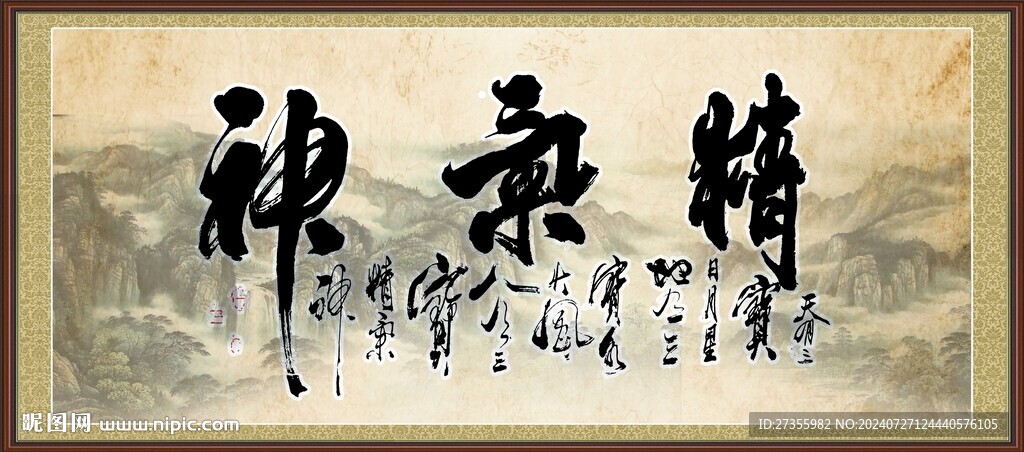 精氣神
天有三
寶
日月星
地有三
寶水
火風
人有三
寶
精氣
神
昵图网 www.nipic.com
ID:27355982 NO:20240727124440576105